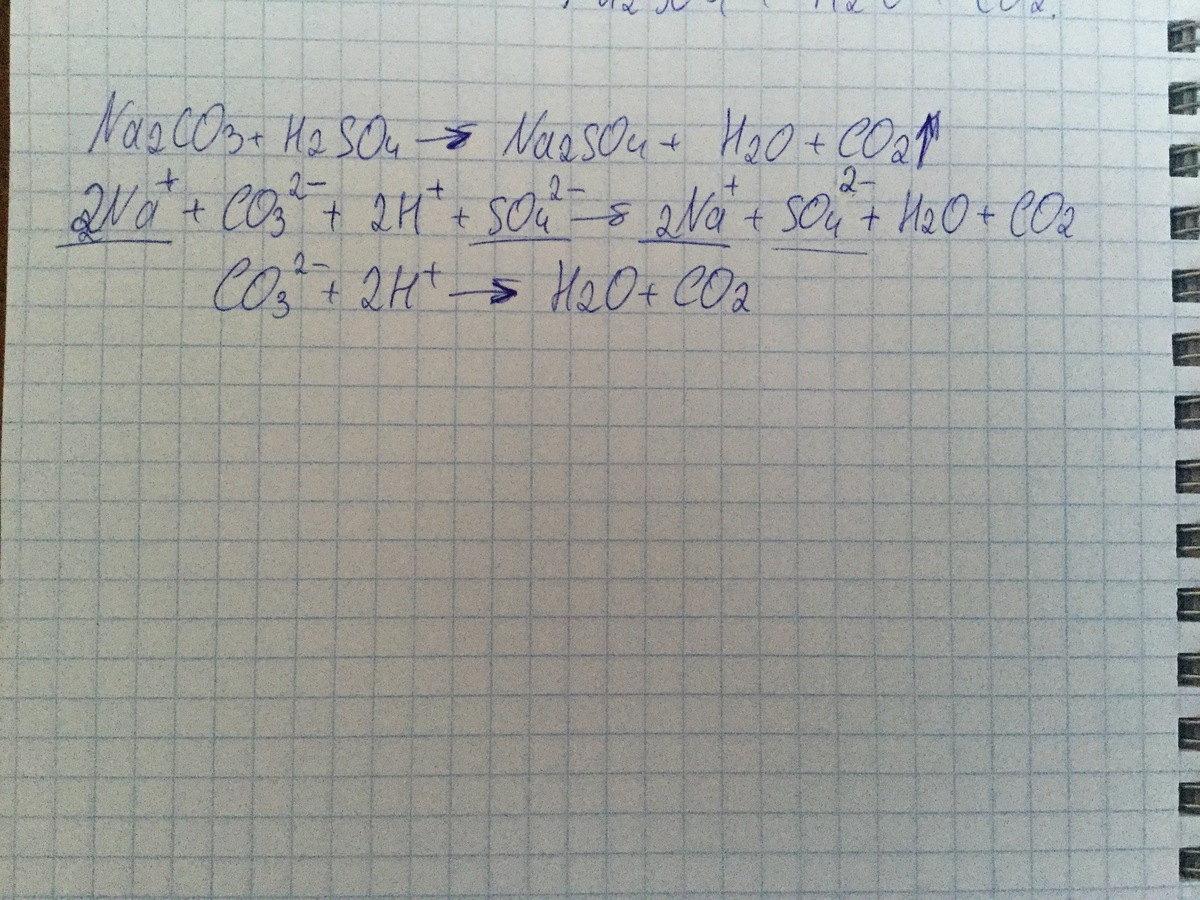 Na2CO3 + H2SO4 → Na2SO4 + H2O + CO2↑
2Na⁺ + CO3²⁻ + 2H⁺ + SO4²⁻ → 2Na⁺ + SO4²⁻ + H2O + CO2
CO3²⁻ + 2H⁺ → H2O + CO2